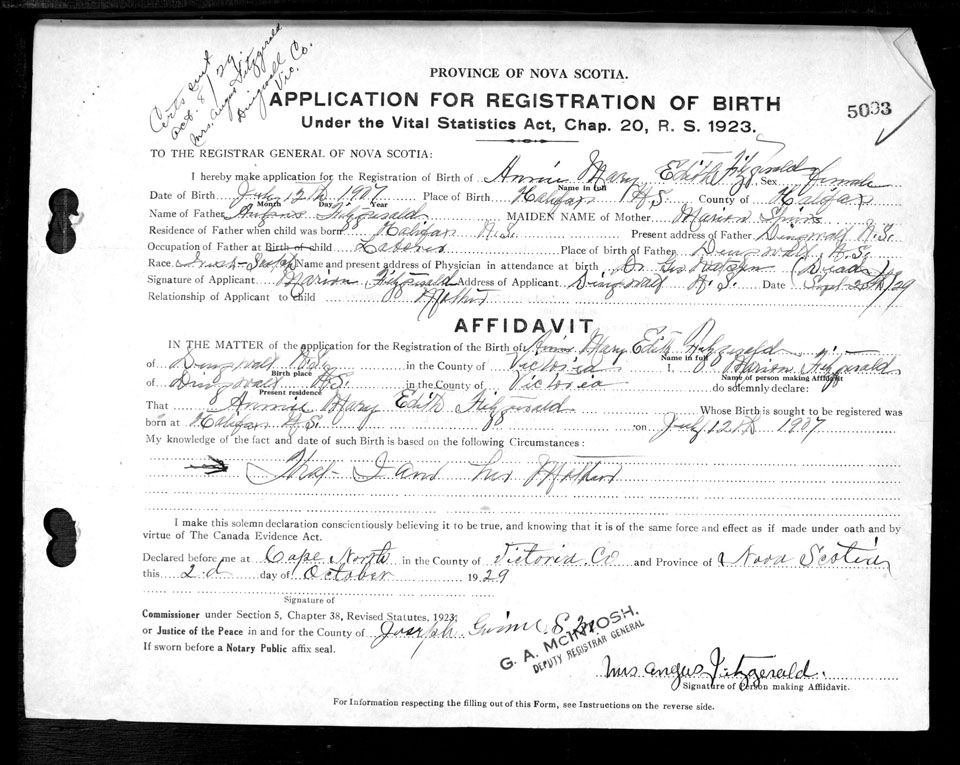 Certs sent
Oct. 8/29
Mrs. Angus Fitzgerald
Dingwall
Vic. Co.
PROVINCE OF NOVA SCOTIA.
APPLICATION FOR REGISTRATION OF BIRTH
5093
Under the Vital Statistics Act, Chap. 20, R. S. 1923.
TO THE REGISTRAR GENERAL OF NOVA SCOTIA:
I hereby make application for the Registration of Birth of Annie Mary Edith Fitzgerald Sex female
Name in full
Date of Birth July 12th 1907 Place of Birth Halifax N.S. County of Halifax
Month Day Year
Name of Father Angus Fitzgerald MAIDEN NAME of Mother Marion
Residence of Father when child was born Halifax N.S. Present address of Father Dingwall N.S.
Occupation of Father at Birth of child Laborer Place of birth of Father Dingwall N.S.
Race Irish-Scotch Name and present address of Physician in attendance at birth Dr Geo (Dead)
Signature of Applicant Marion Fitzgerald Address of Applicant Dingwall N.S. Date Sept 20th/29
Relationship of Applicant to child Mother
AFFIDAVIT
IN THE MATTER of the application for the Registration of the Birth of Annie Mary Edith Fitzgerald
Name in full
of Dingwall N.S. in the County of Victoria I, Marion Fitzgerald
Birth place
Name of person making Affidavit
of Dingwall N.S. in the County of Victoria do solemnly declare:
Present residence
That Annie Mary Edith Fitzgerald Whose Birth is sought to be registered was
born at Halifax N.S. on July 12th 1907
My knowledge of the fact and date of such Birth is based on the following Circumstances:
That I and her Mother
I make this solemn declaration conscientiously believing it to be true, and knowing that it is of the same force and effect as if made under oath and by
virtue of The Canada Evidence Act.
Declared before me at Cape North in the County of Victoria Co and Province of Nova Scotia
this 2d day of October 1929
Signature of
Commissioner under Section 5, Chapter 38, Revised Statutes, 1923;
or Justice of the Peace in and for the County of Joseph
If sworn before a Notary Public affix seal.
G. A. McINTOSH.
DEPUTY REGISTRAR GENERAL
Mrs Angus Fitzgerald.
Signature of Person making Affidavit.
For Information respecting the filling out of this Form, see Instructions on the reverse side.